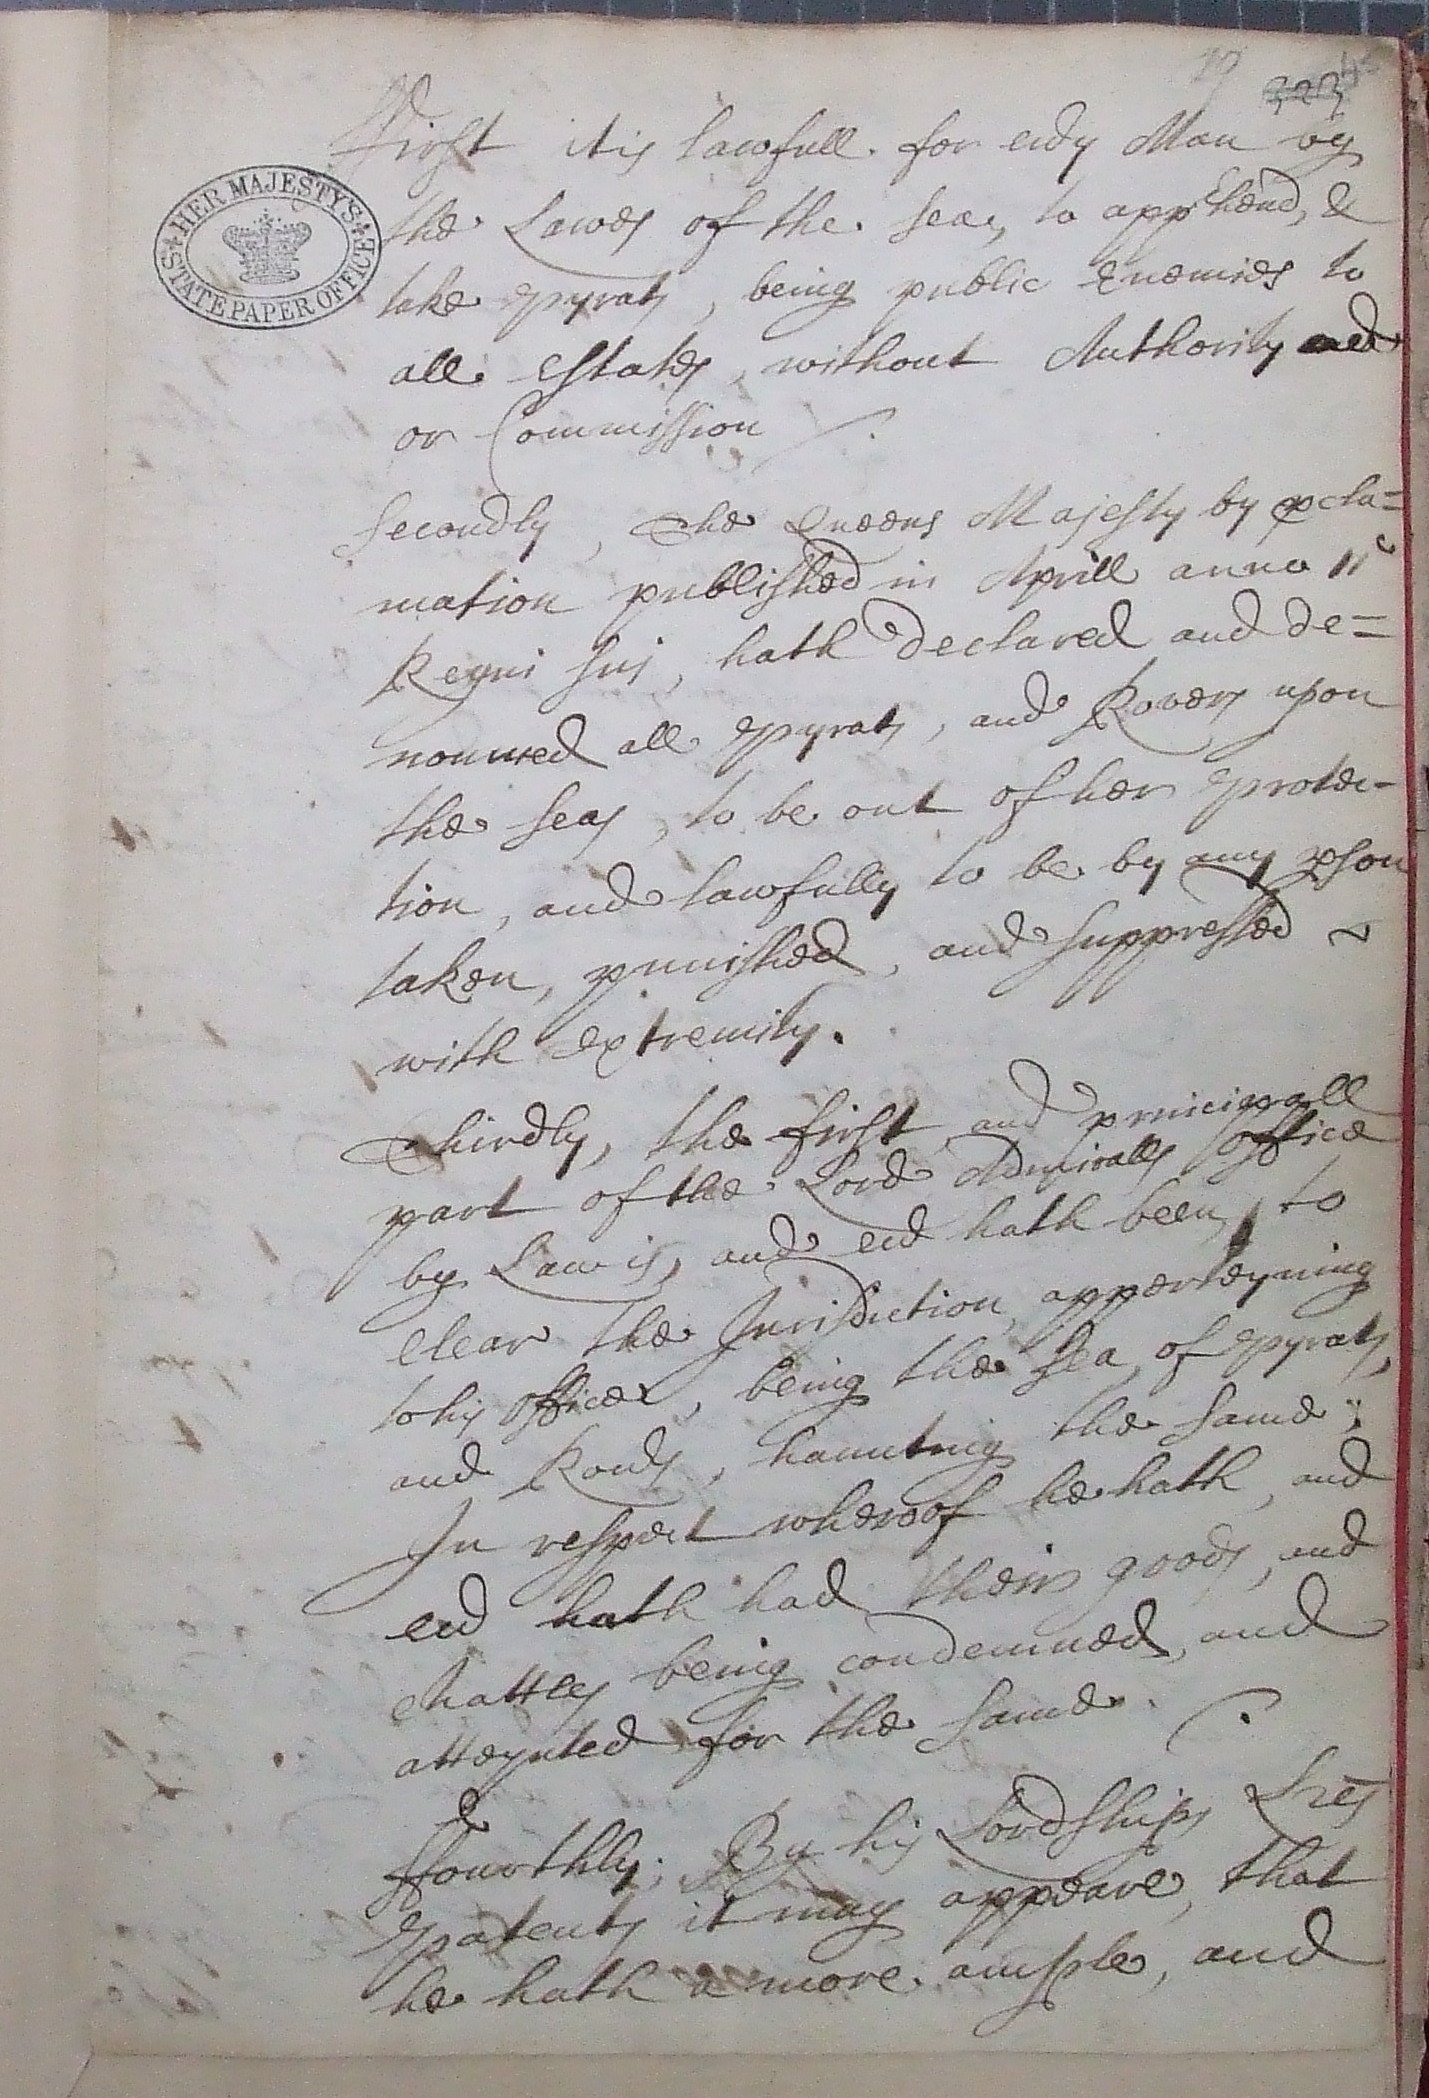 19
323
HER MAJESTY'S
STATE PAPER OFFICE
First it is lawfull for evy Man by
the Lawes of the Sea, to apprhend, &
take Pyrats, being public Enemies to
all Estates, without Authority
or Commission /.
Secondly, The Queens Majesty by pcla=
mation published in Aprill anno 11º
Regni sui, hath declared and de=
nounced all Pyrats, and Rovers upon
the Seas, to be out of her Protec-
tion, and lawfully to be by any pson
taken, punished, and suppressed ~
with extremity.
Thirdly, the first and principall
part of the Lord Admiralls office
by Law is, and evr hath been, to
clear the Jurisdiction apperteyning
to his Office, being the Sea, of Pyrats,
and Rovrs, haunting the same;
In respect whereof he hath, and
evr hath had their goods, and
chattles being condemned, and
atteynted for the same. /.
Ffourthly, By his Lordships Lres
Patents it may appeare, that
he hath a more ample, and